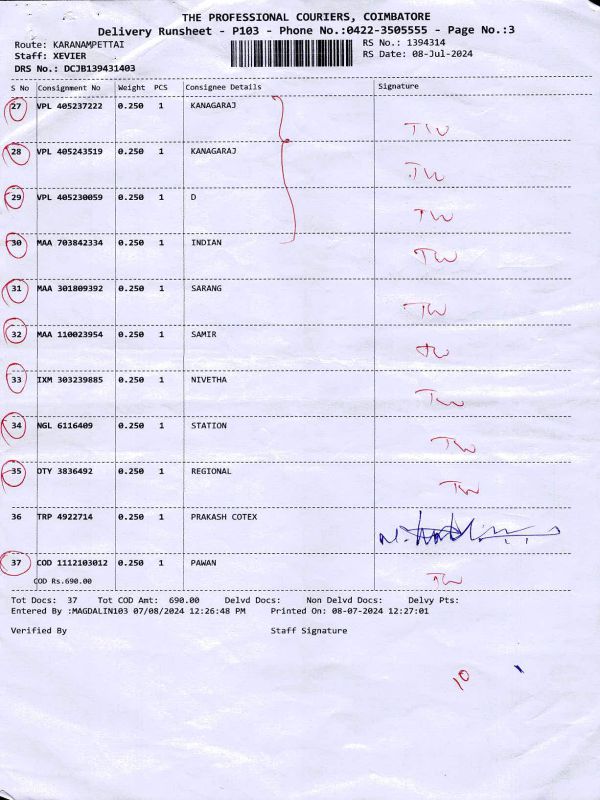 THE PROFESSIONAL COURIERS, COIMBATORE
Delivery Runsheet - P103 - Phone No.:0422-3505555 - Page No.:3
Route: KARANAMPETTAI RS No.: 1394314
Staff: XEVIER RS Date: 08-Jul-2024
DRS No.: DCJB139431403
S No Consignment No Weight PCS Consignee Details Signature
27 VPL 405237222 0.250 1 KANAGARAJ
TW
28 VPL 405243519 0.250 1 KANAGARAJ
TW
29 VPL 405230059 0.250 1 D
TW
30 MAA 703842334 0.250 1 INDIAN
TW
31 MAA 301809392 0.250 1 SARANG
TW
32 MAA 110023954 0.250 1 SAMIR
TW
33 IXM 303239885 0.250 1 NIVETHA
TW
34 NGL 6116409 0.250 1 STATION
TW
35 OTY 3836492 0.250 1 REGIONAL
TW
36 TRP 4922714 0.250 1 PRAKASH COTEX
37 COD 1112103012 0.250 1 PAWAN
COD Rs.690.00 TW
Tot Docs: 37 Tot COD Amt: 690.00 Delvd Docs: Non Delvd Docs: Delvy Pts:
Entered By :MAGDALIN103 07/08/2024 12:26:48 PM Printed On: 08-07-2024 12:27:01
Verified By Staff Signature
10